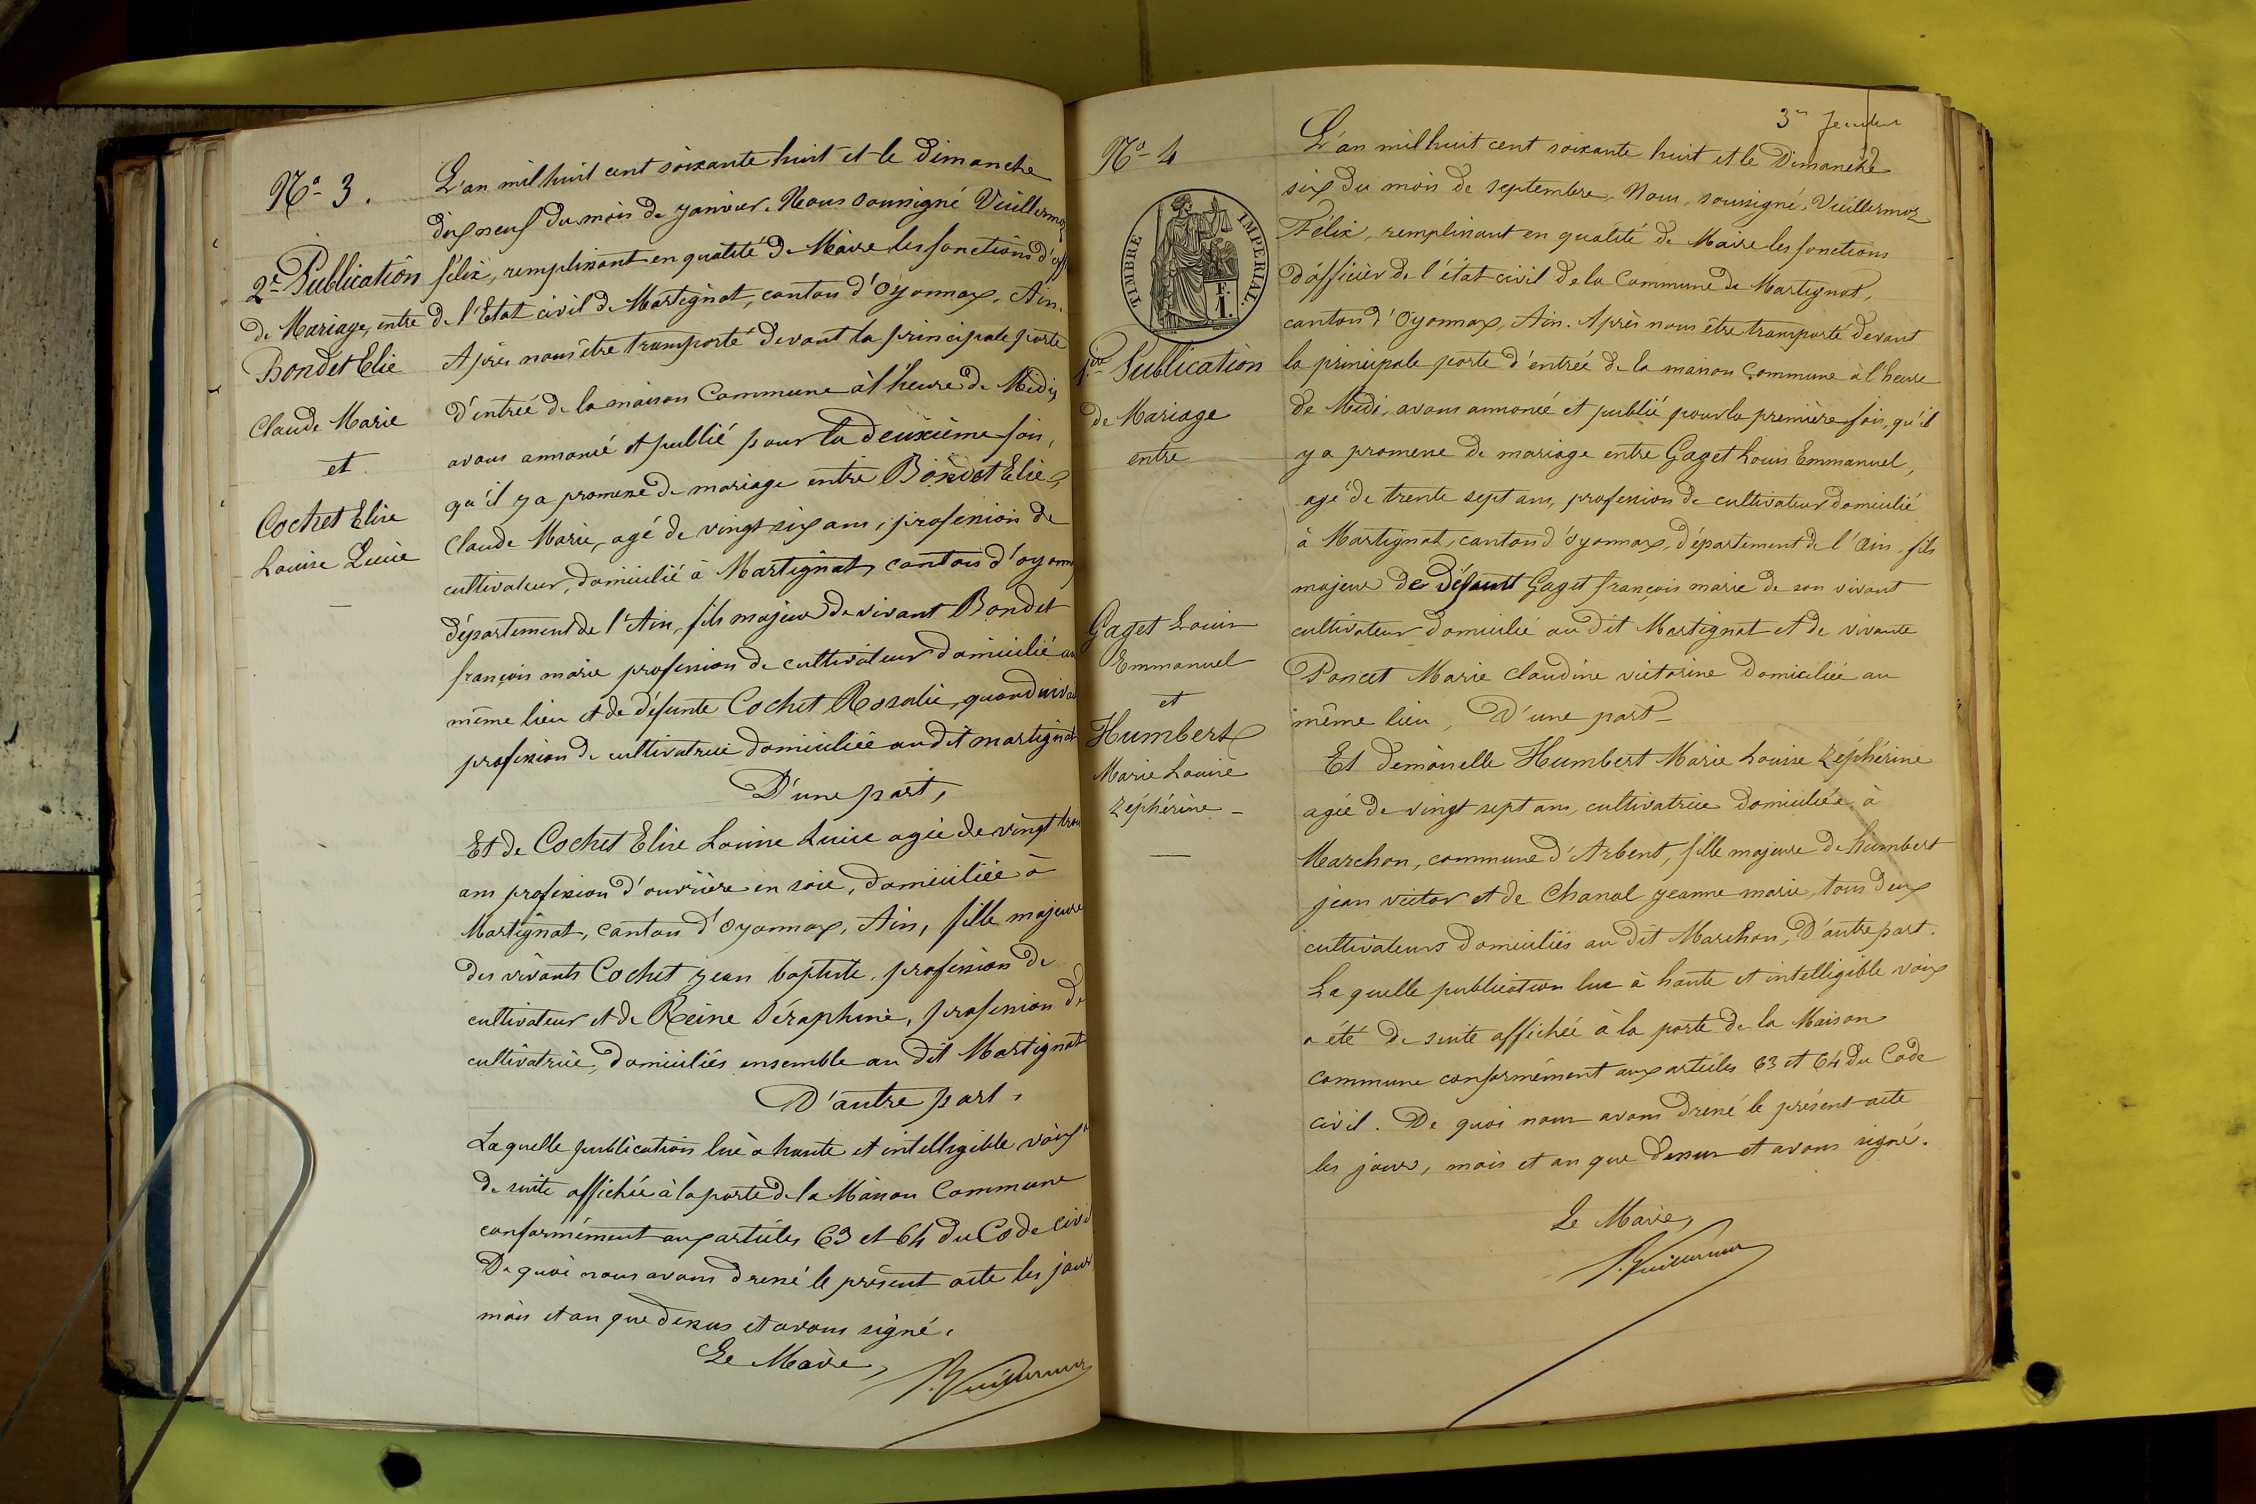 Nº 3.
2e Publication
de Mariage, entre
Bondet Elie
Claude Marie
et
Cochet Elise
Louise Lucie
L'an mil huit cent soixante huit et le dimanche
dix neuf du mois de janvier. Nous soussigné Vuillermoz
félix, remplissant en qualité de Maire les fonctions d'off
de l'Etat civil de Martignat, canton d'Oyonnax, Ain.
Après nous être transporté devant la principale porte
d'entrée de la maison Commune à l'heure de Midi,
avons annoncé et publié pour la deuxième fois,
qu'il y a promesse de mariage entre Bondet Elie,
Claude Marie, agé de vingt six ans, profession de
cultivateur, domicilié à Martignat, canton d'oyonn
département de l'Ain, fils majeur de vivant Bondet
françois marie profession de cultivateur domicilié au
même lieu et de défunte Cochet Rosalie, quand viva
profession de cultivatrice domiciliée au dit martignat
D'une part,
Et de Cochet Elise Louise Lucie agée de vingt trois
ans profession d'ouvrière en soie, domiciliée à
Martignat, canton d'Oyonnax, Ain, fille majeure
des vivants Cochet jean baptiste, profession de
cultivateur et de Reine Séraphine, profession de
cultivatrice, domiciliés ensemble au dit Martignat
D'autre part,
Laquelle publication lue à haute et intelligible voix a
de suite affichée à la porte de la Maison Commune
conformément aux articles 63 et 64 du Code civil
De quoi nous avons dressé le présent acte les jour
mois et an que dessus et avons signé,
Le Maire,
F. Vuillermoz
3e feuillet
Nº 4
TIMBRE IMPERIAL.
F.
1.
1ère Publication
de Mariage
entre
Gaget Louis
Emmanuel
et
Humbert
Marie Louise
Zéphérine
L'an mil huit cent soixante huit et le Dimanche
six du mois de septembre, Nous, soussigné, Vuillermoz
Félix, remplissant en qualité de Maire les fonctions
d'officier de l'état civil de la Commune de Martignat,
canton d'Oyonnax, Ain. Après nous être transporté devant
la principale porte d'entrée de la maison Commune à l'heure
de Midi, avons annoncé et publié pour la première fois, qu'il
y a promesse de mariage entre Gaget Louis Emmanuel,
agé de trente sept ans, profession de cultivateur domicilié
à Martignat, canton d'oyonnax, département de l'Ain, fils
majeur de défunt Gaget françois marie de son vivant
cultivateur domicilié au dit Martignat et de vivante
Poncet Marie Claudine victorine domiciliée au
même lieu, D'une part
Et demoiselle Humbert Marie Louise Zéphérine
agée de vingt sept ans, cultivatrice domiciliée à
Marchon, commune d'Arbent, fille majeure de humbert
jean victor et de Chanal jeanne marie, tous deux
cultivateurs domiciliés au dit Marchon, D'autre part.
Laquelle publication lue à haute et intelligible voix
a été de suite affichée à la porte de la Maison
commune conformément aux articles 63 et 64 du Code
civil. De quoi nous avons dressé le présent acte
les jour, mois et an que dessus et avons signé.
Le Maire,
F. Vuillermoz